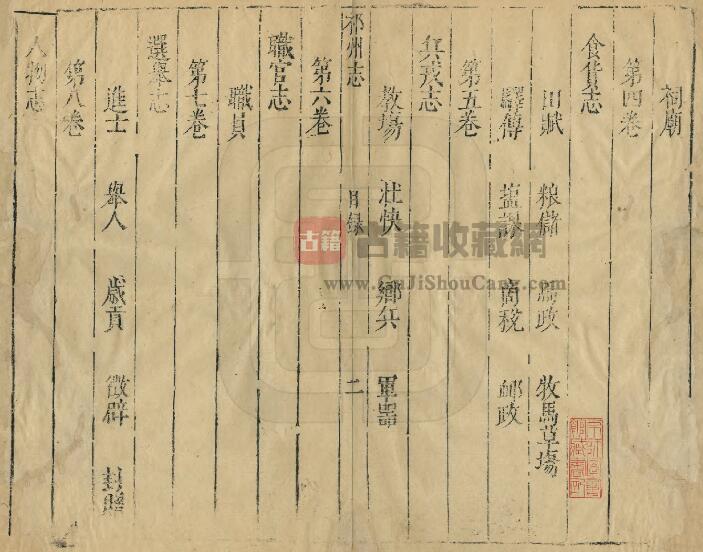 祠廟
第四卷
食貨志
田賦 粮儲 馬政 牧馬草塲
驛傳 塩課 商稅 郵政
第五卷
兵戎志
教塲 壯快 鄉兵 軍噐
祁州志 目録 二
第六卷
職官志
職員
第七卷
選舉志
進士 舉人 歲貢 徵辟 封贈
第八卷
人物志
古籍
古籍收藏網
www.GuJiShouCang.com